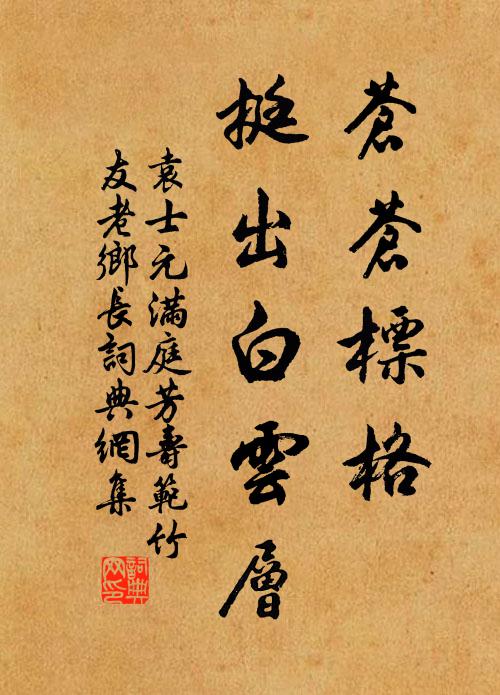 蒼蒼標格
挺出白雲層
袁士元滿庭芳壽範竹
友老鄉長詞典網集
詞典
网印